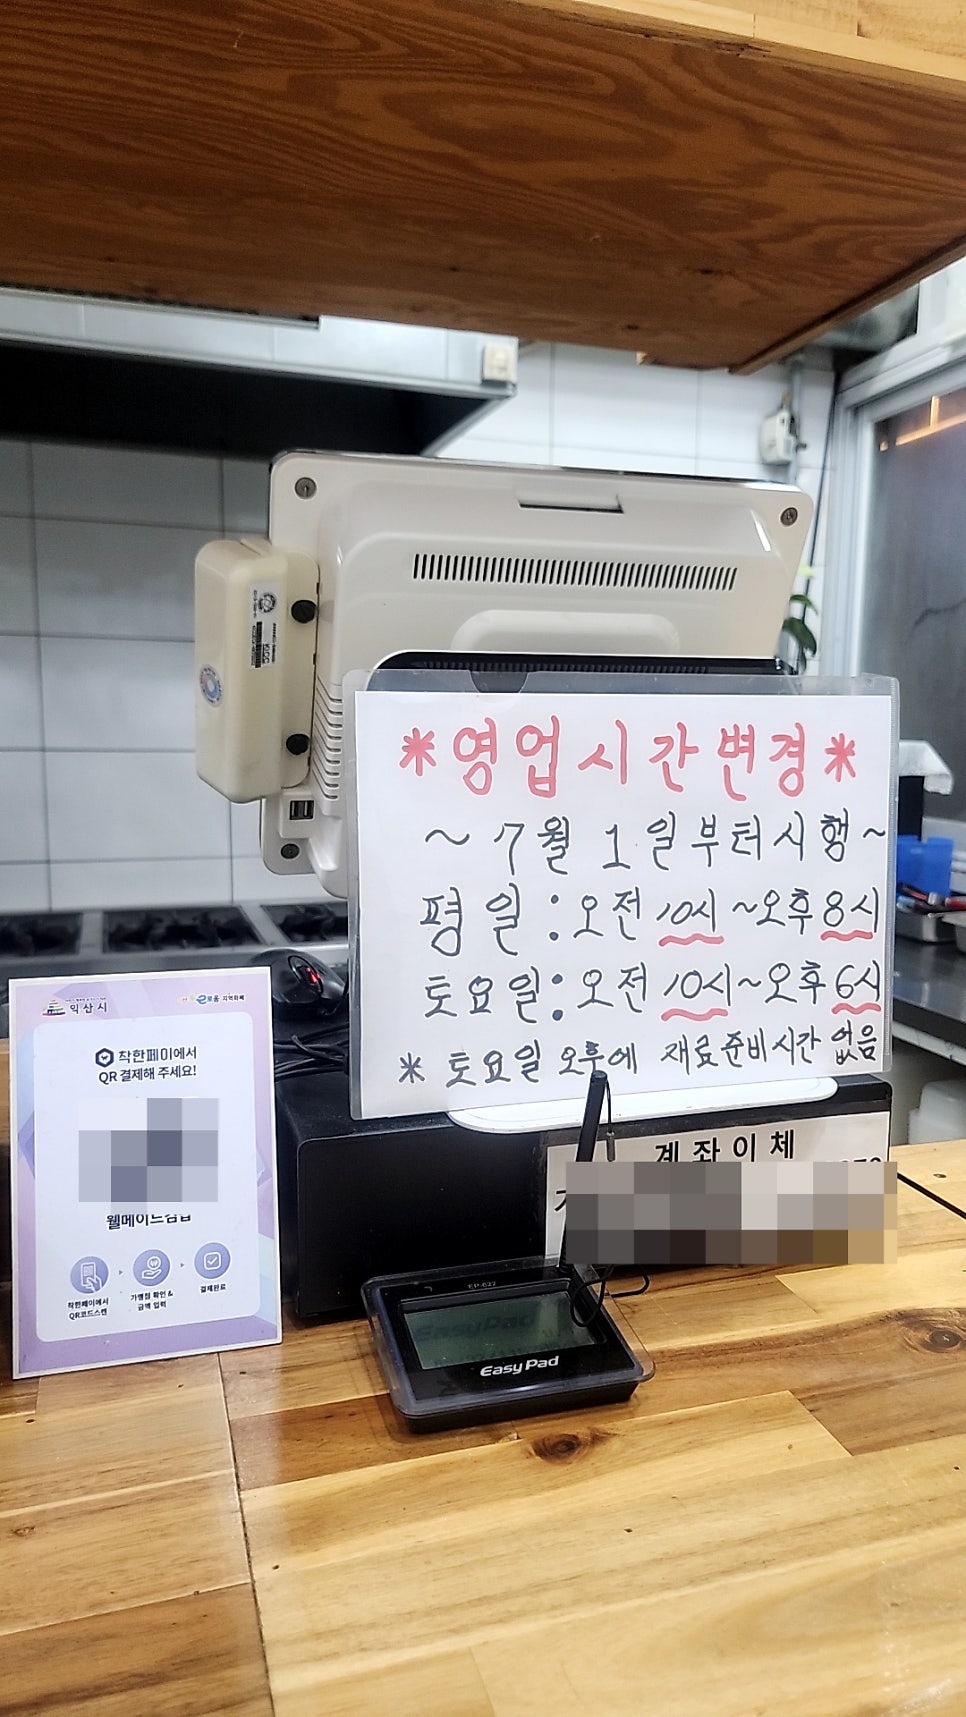 *영업시간변경*
~7월 1일부터시행~
평일:오전10시~오후8시
토요일:오전10시~오후6시
* 토요일 오후에 재료준비시간 없음
계좌이체
익산시
지역화폐
착한페이에서
QR결제해 주세요!
착한페이에서
QR코드스캔
가맹점 확인 &
금액 입력
결제완료
EP-622
EasyPad